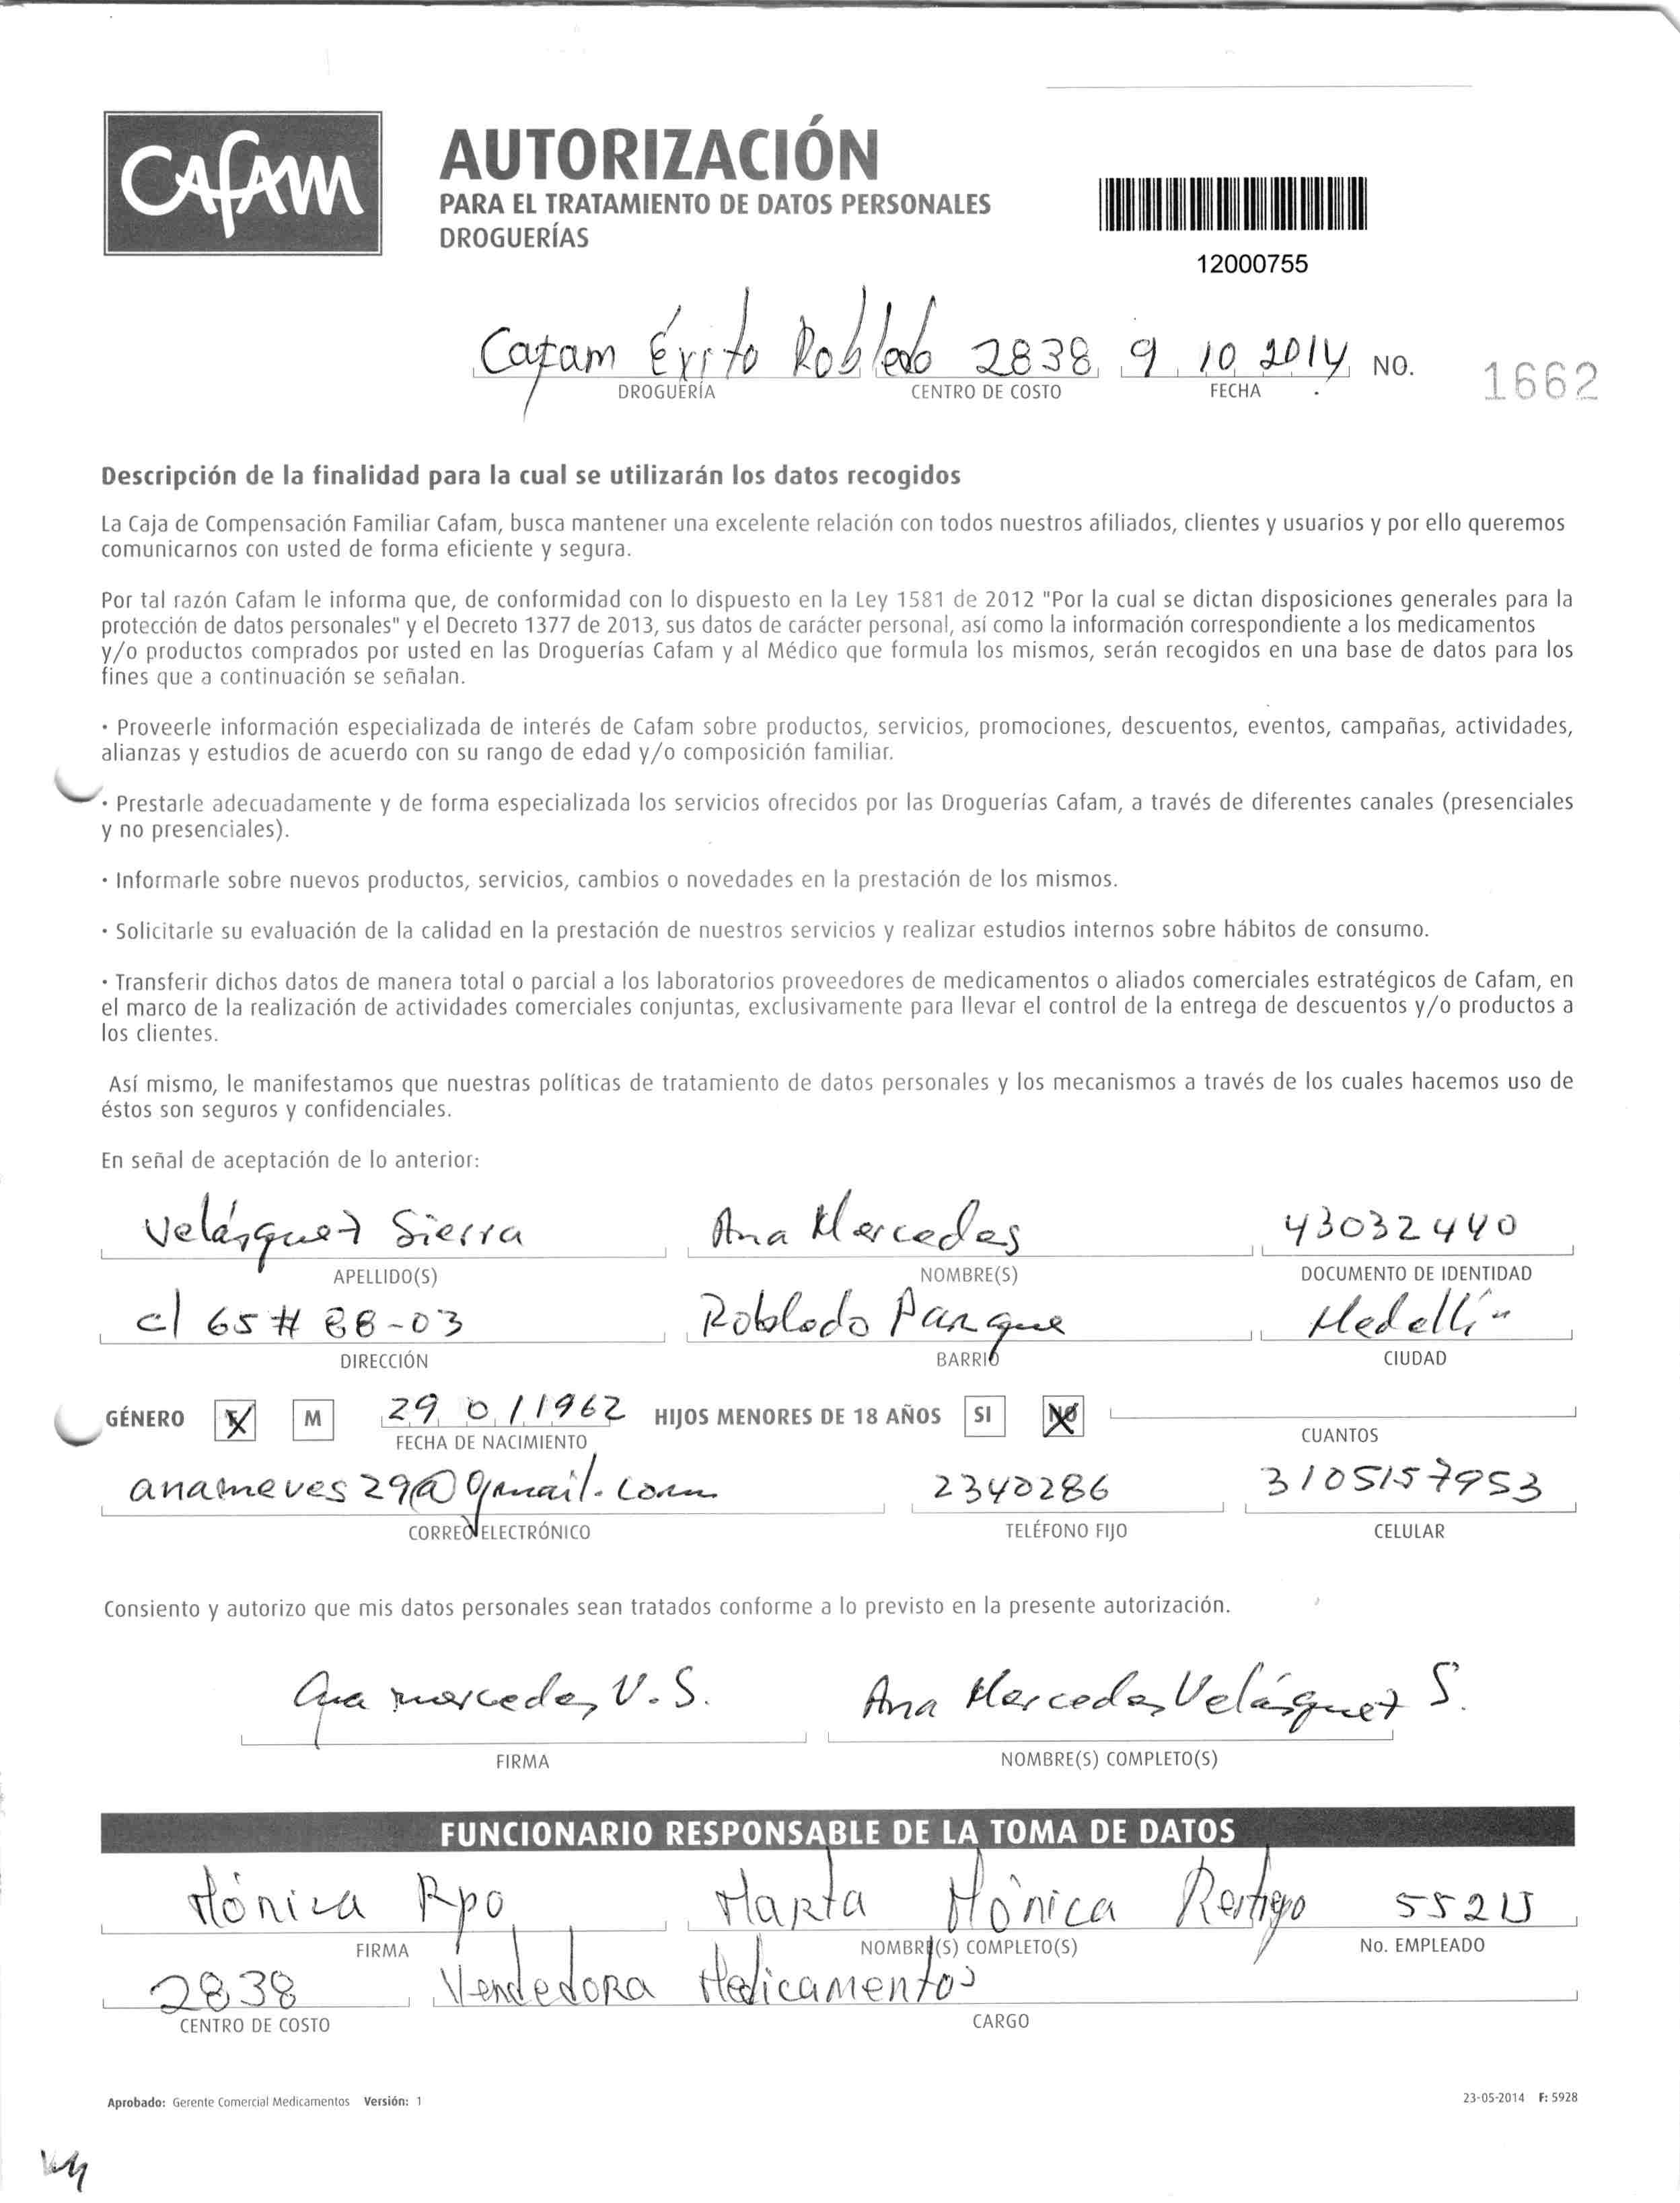 CAFAM
AUTORIZACIÓN
PARA EL TRATAMIENTO DE DATOS PERSONALES
DROGUERÍAS
12000755
Cafam Éxito Robledo 2838 9 10 2014 NO. 1662
DROGUERÍA CENTRO DE COSTO FECHA
Descripción de la finalidad para la cual se utilizarán los datos recogidos
La Caja de Compensación Familiar Cafam, busca mantener una excelente relación con todos nuestros afiliados, clientes y usuarios y por ello queremos
comunicarnos con usted de forma eficiente y segura.
Por tal razón Cafam le informa que, de conformidad con lo dispuesto en la Ley 1581 de 2012 "Por la cual se dictan disposiciones generales para la
protección de datos personales" y el Decreto 1377 de 2013, sus datos de carácter personal, así como la información correspondiente a los medicamentos
y/o productos comprados por usted en las Droguerías Cafam y al Médico que formula los mismos, serán recogidos en una base de datos para los
fines que a continuación se señalan.
· Proveerle información especializada de interés de Cafam sobre productos, servicios, promociones, descuentos, eventos, campañas, actividades,
alianzas y estudios de acuerdo con su rango de edad y/o composición familiar.
· Prestarle adecuadamente y de forma especializada los servicios ofrecidos por las Droguerías Cafam, a través de diferentes canales (presenciales
y no presenciales).
· Informarle sobre nuevos productos, servicios, cambios o novedades en la prestación de los mismos.
· Solicitarle su evaluación de la calidad en la prestación de nuestros servicios y realizar estudios internos sobre hábitos de consumo.
· Transferir dichos datos de manera total o parcial a los laboratorios proveedores de medicamentos o aliados comerciales estratégicos de Cafam, en
el marco de la realización de actividades comerciales conjuntas, exclusivamente para llevar el control de la entrega de descuentos y/o productos a
los clientes.
Así mismo, le manifestamos que nuestras políticas de tratamiento de datos personales y los mecanismos a través de los cuales hacemos uso de
éstos son seguros y confidenciales.
En señal de aceptación de lo anterior:
Velásquez Sierra Ana Mercedes 43032440
APELLIDO(S) NOMBRE(S) DOCUMENTO DE IDENTIDAD
cl 65 # 88-03 Robledo Parque Medellín
DIRECCIÓN BARRIO CIUDAD
GÉNERO F M 29 01 1962 HIJOS MENORES DE 18 AÑOS SI NO
FECHA DE NACIMIENTO CUANTOS
anameves29@gmail.com 2340286 3105157953
CORREO ELECTRÓNICO TELÉFONO FIJO CELULAR
Consiento y autorizo que mis datos personales sean tratados conforme a lo previsto en la presente autorización.
Ana mercedes V.S. Ana Mercedes Velásquez S.
FIRMA NOMBRE(S) COMPLETO(S)
FUNCIONARIO RESPONSABLE DE LA TOMA DE DATOS
Mónica Rpo Marta Mónica Restrepo
FIRMA NOMBRE(S) COMPLETO(S) No. EMPLEADO
2838 Vendedora Medicamentos
CENTRO DE COSTO CARGO
Aprobado: Gerente Comercial Medicamentos Versión: 1 23-05-2014 F: 5928